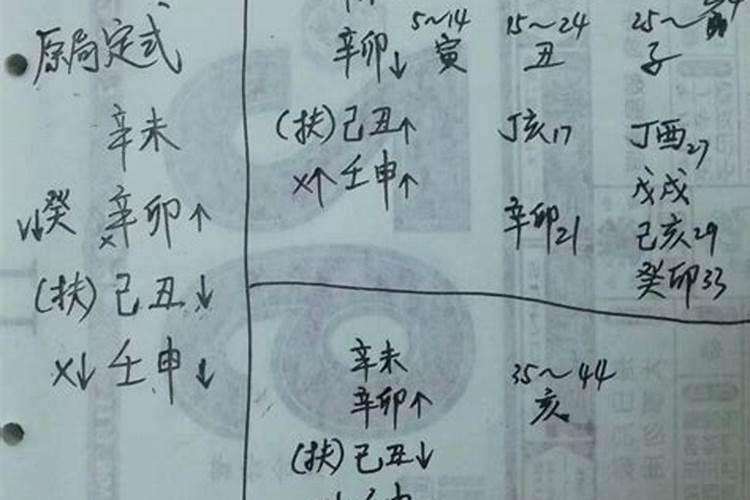 原局定式
辛未
↓癸 ×辛卯↑
(扶)己丑↓
×↓壬申↓
辛卯↓
5~14
寅
15~24
丑
25~
子
(扶)己丑↑
×↑壬申↑
丁亥17
辛卯21
丁酉27
戊戌
己亥29
癸卯33
辛未
辛卯↑
(扶)己丑↓
35~44
亥